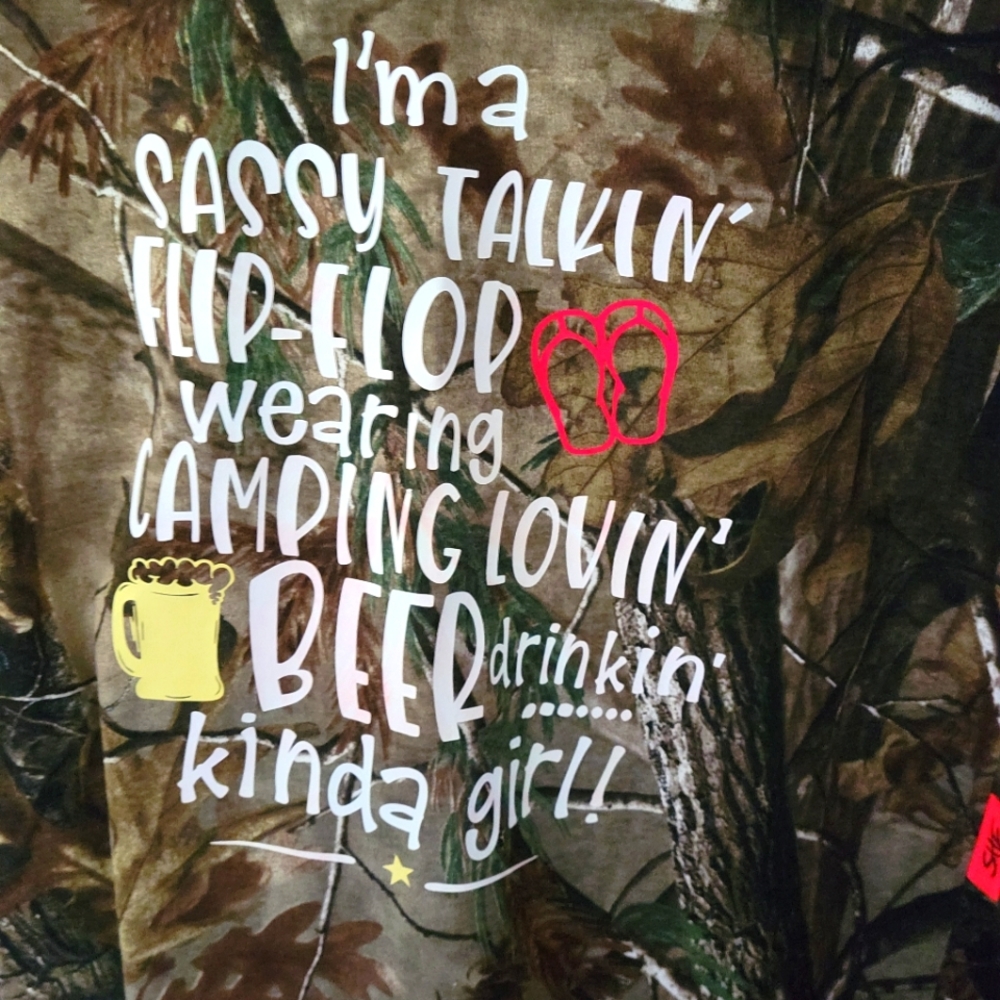 I'm a
SASSY TALKIN'
FLIP-FLOP
wearing
CAMPING LOVIN'
BEER drinkin'
kinda girl!!